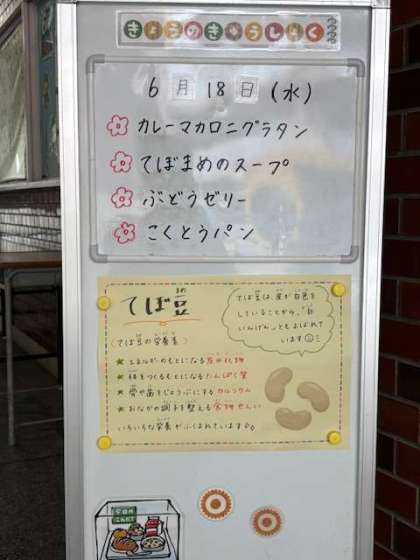 きょうのきゅうしょく
6月18日(水)
カレーマカロニグラタン
てぼまめのスープ
ぶどうゼリー
こくとうパン
てぼ豆
まめ
てぼ豆は、皮が白色を
していることから、"白
いんげん"ともよばれて
います
(てぼ豆の栄養素)
★ エネルギーのもとになる炭水化物
★ 体をつくるもとになるたんぱく質
★ 骨や歯をじょうぶにするカルシウム
★ おなかの調子を整える食物せんい
いろいろな栄養がふくまれています。
今日の
こんだて